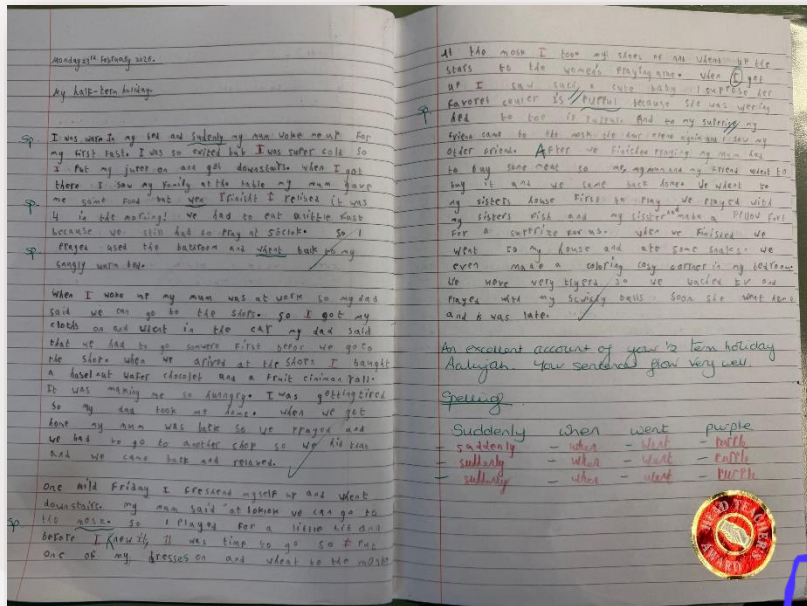 Monday 23rd February 2026.
My half-term holiday
sp
I was warm in my bed and sudenly my mum woke me up for
my first fast. I was so exited but I was super cold so
I put my juper on and got downstairs. when I got
there I saw my family at the table my mum gave
me some food but wen I finisht I relised it was
4 in the morning! we had to eat alittle fast
because we still had to pray at 5oclok. so I
sp
prayed used the bathroom and whent back to my
snugly warm bed.
When I woke up my mum was at work so my dad
said we can go to the shops. so I got my
cloths on and whent in the car my dad said
that we had to go first before we go to
the shop. when we arived at the shops I baught
a wafer chocolet and a fruit ciniman roll.
It was making me so hungry. I was getting tired
so my dad took me home. when we got
home my mum was back so we prayed and
we had to go to another shop so we did that
and we came back and relaxed.
One mild Friday I freshend myself up and whent
downstairs. my mum said we can go to
sp
the mosk. so I played for a little bit and
before I knew it, it was time to go so I put
one of my dresses on and whent to the
At the mosk I took my shoes of and whent up the
stars to the womens praying area. when I got
up I saw such a cute baby I supose her
sp
favoret couler is purpul because she was wering
hed to toe in And to my my
friend came to the mosk again and I saw my
other friend. After we finished praying my mum had
to buy some meat so me, my mum and my friend whent to
buy it and we came back home. We whent to
my sisters house first to play we played with
my sisters fish and my sisster and make a
for a surprize for us. when we finished we
went to my house and ate some snaks. we
even made a coloring cosy corner in my bedroom.
We were very so we wached tv and
played with my balls soon she went home
and it was late.
An excellent account of your ½ term holiday
Aaliyah. Your sentences flow very well.
Spelling
Suddenly when went purple
- suddenly - when - went - purple
- suddenly - when - went - purple
- suddenly - when - went - purple
HEAD TEACHER'S
AWARD